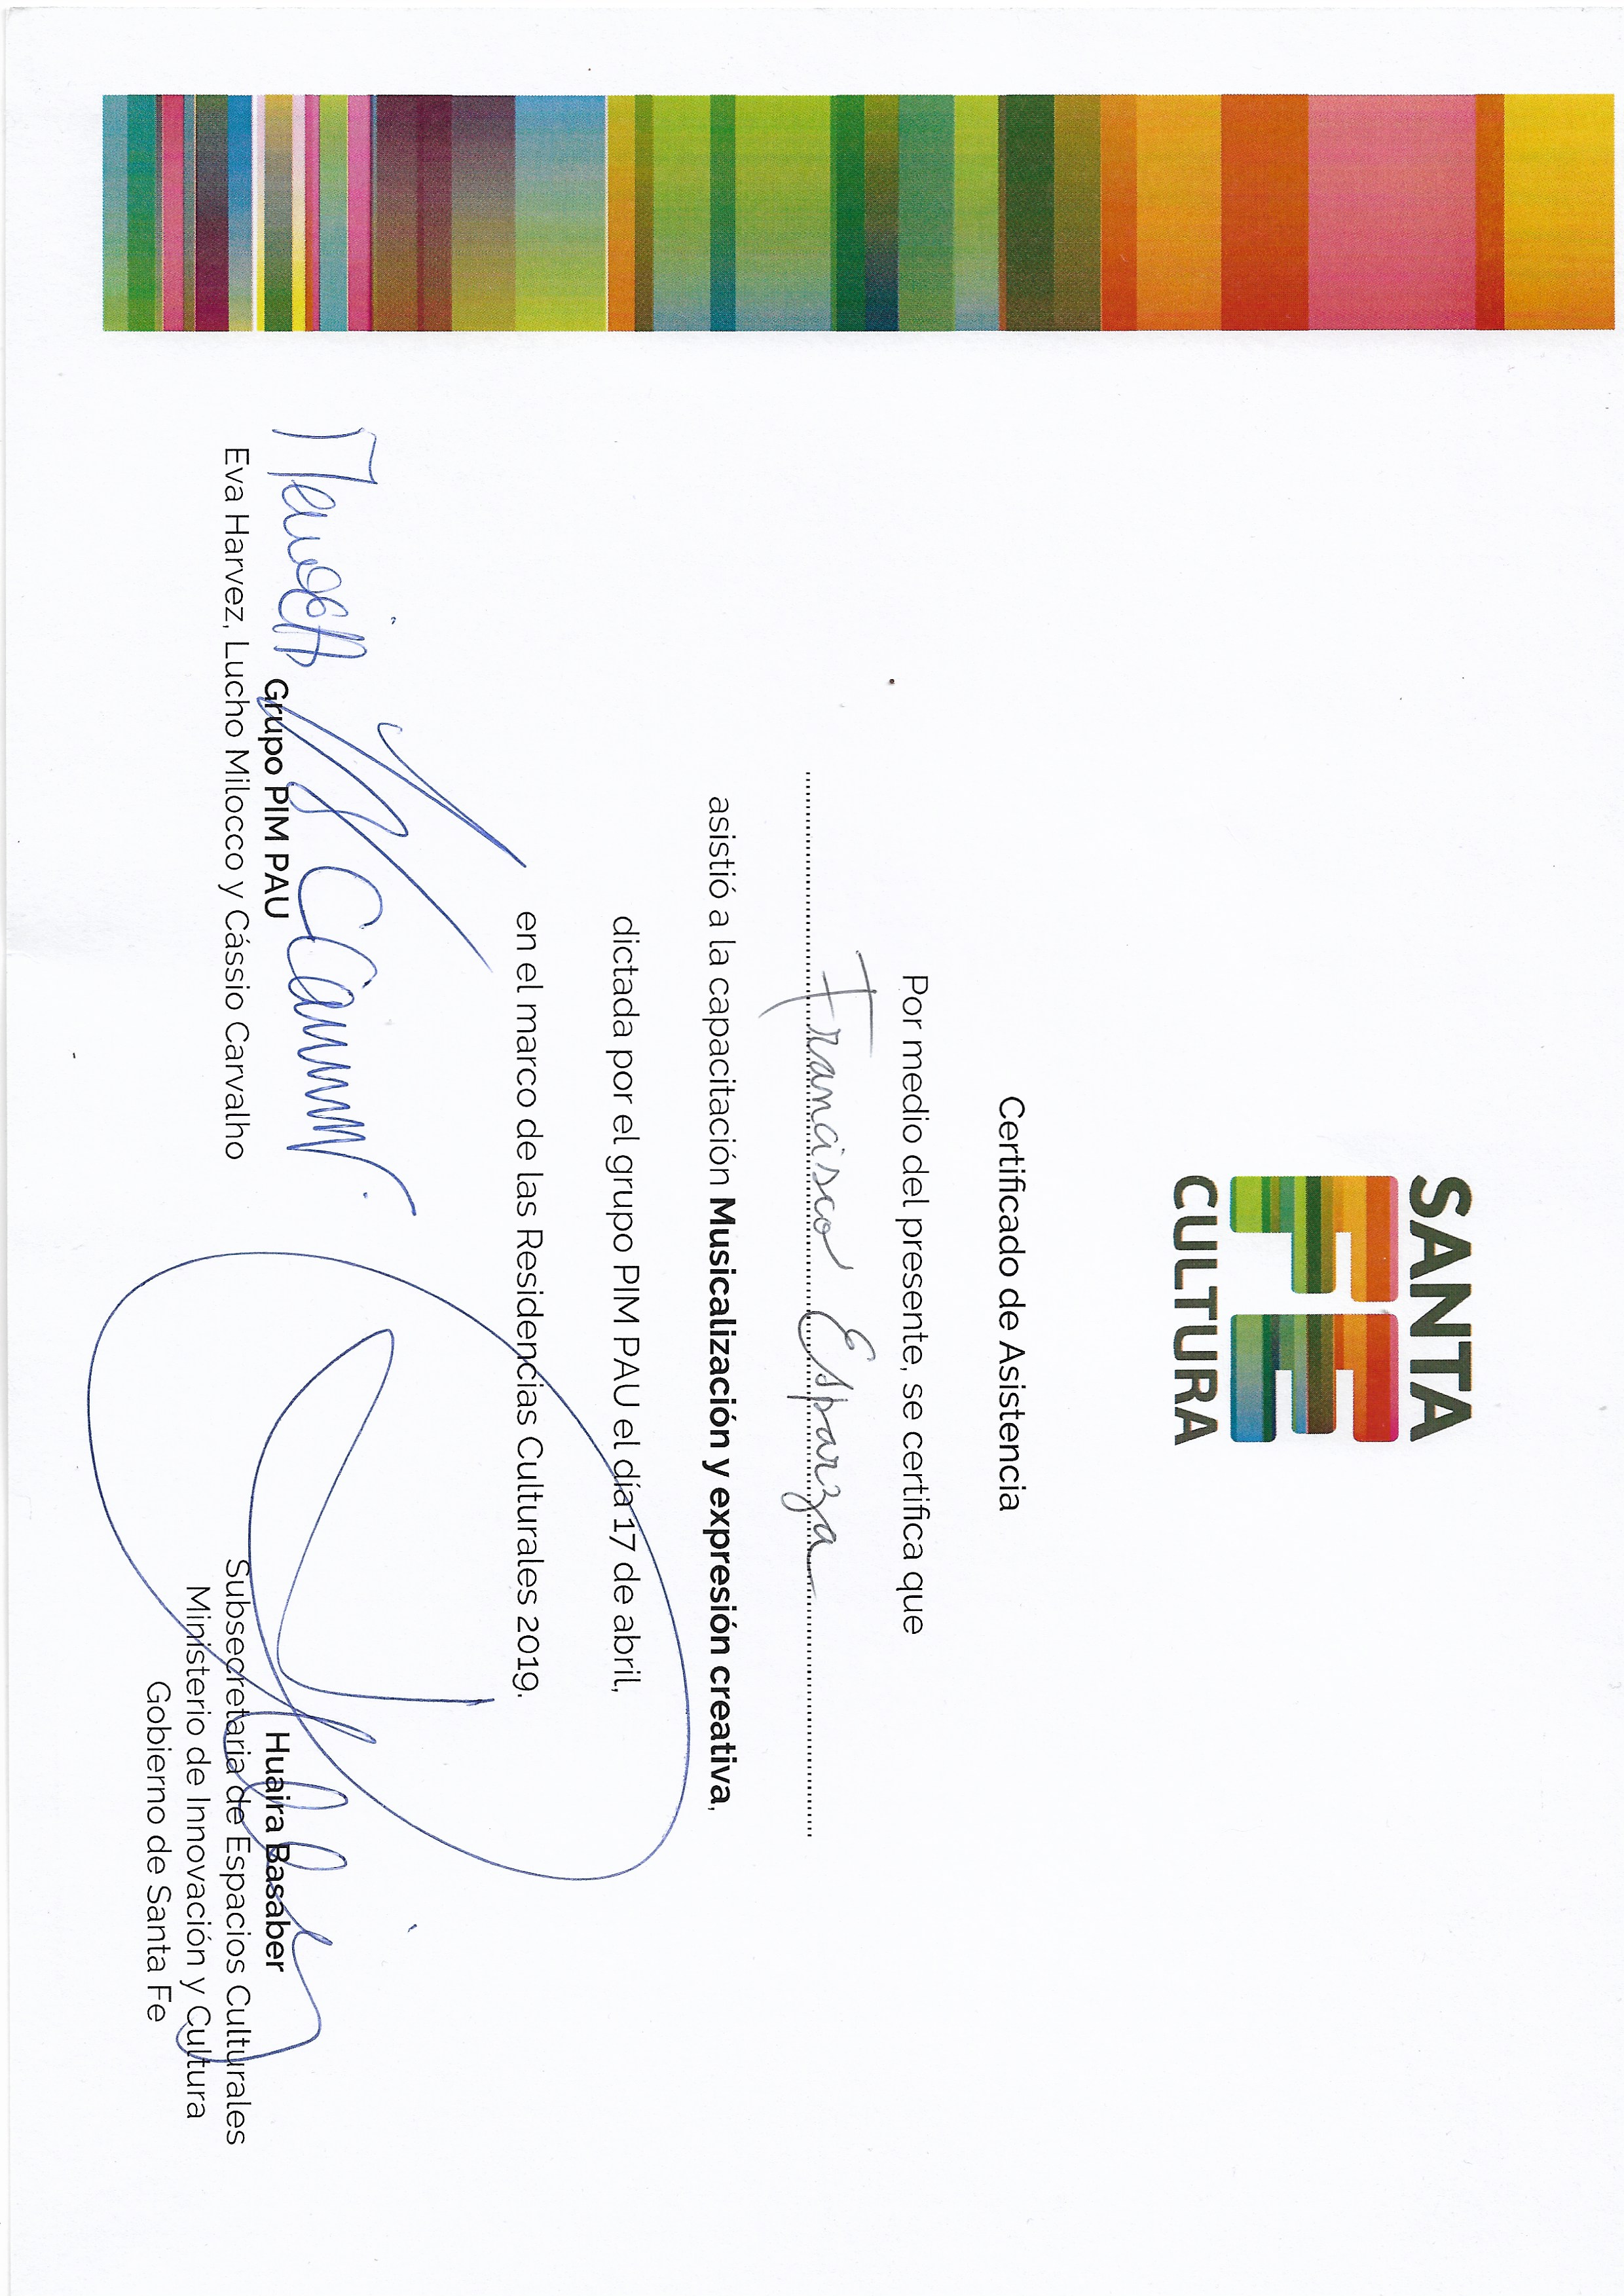 SANTA
FE
CULTURA
Certificado de Asistencia
Por medio del presente, se certifica que
Francisco Esparza
asistió a la capacitación Musicalización y expresión creativa,
dictada por el grupo PIM PAU el día 17 de abril,
en el marco de las Residencias Culturales 2019.
Grupo PIM PAU
Eva Harvez, Lucho Milocco y Cássio Carvalho
Huaira Basaber
Subsecretaria de Espacios Culturales
Ministerio de Innovación y Cultura
Gobierno de Santa Fe